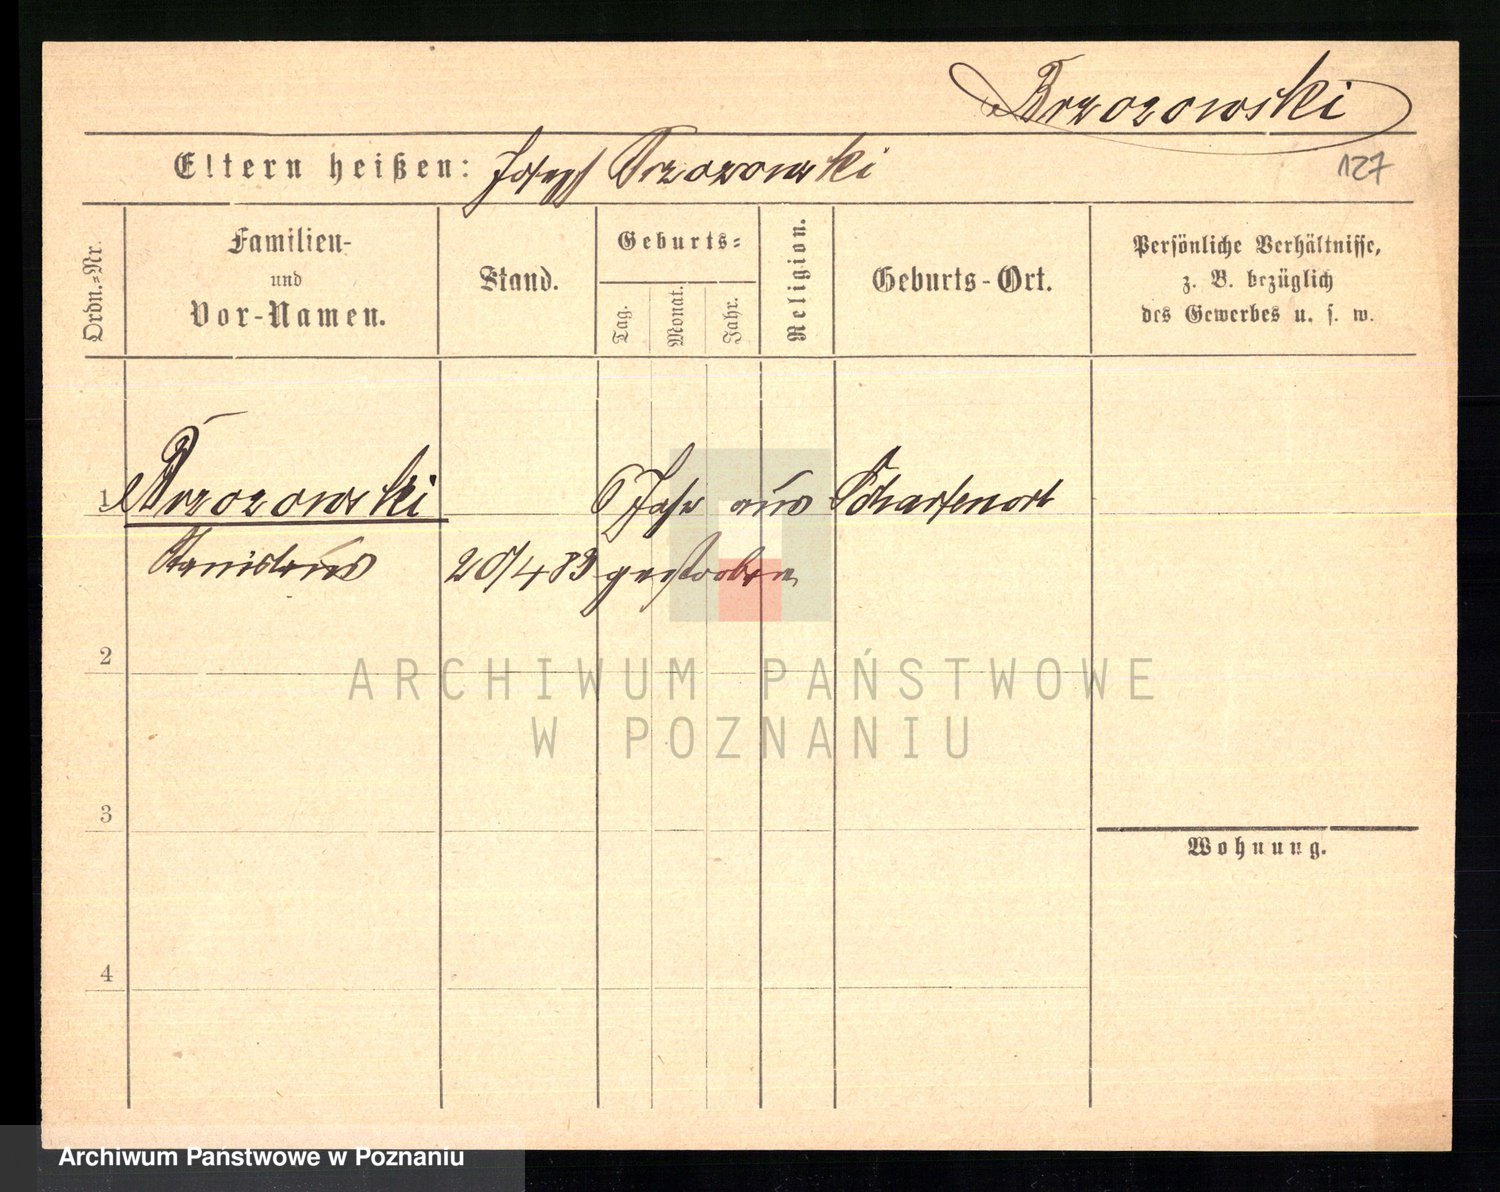 Brzozowski
Eltern heißen: Joseph Brzozowski
127
Ordn.=Nr.
Familien-
und
Vor-Namen.
Stand.
Geburts=
Tag.
Monat.
Jahr.
Religion.
Geburts-Ort.
Persönliche Verhältnisse,
z. B. bezüglich
des Gewerbes u. s. w.
1 Brzozowski 6 Jahr aus Scharfenort
Stanislaus 20/4 83 gestorben
2
ARCHIWUM PAŃSTWOWE
W POZNANIU
3
Wohnung.
4
Archiwum Państwowe w Poznaniu